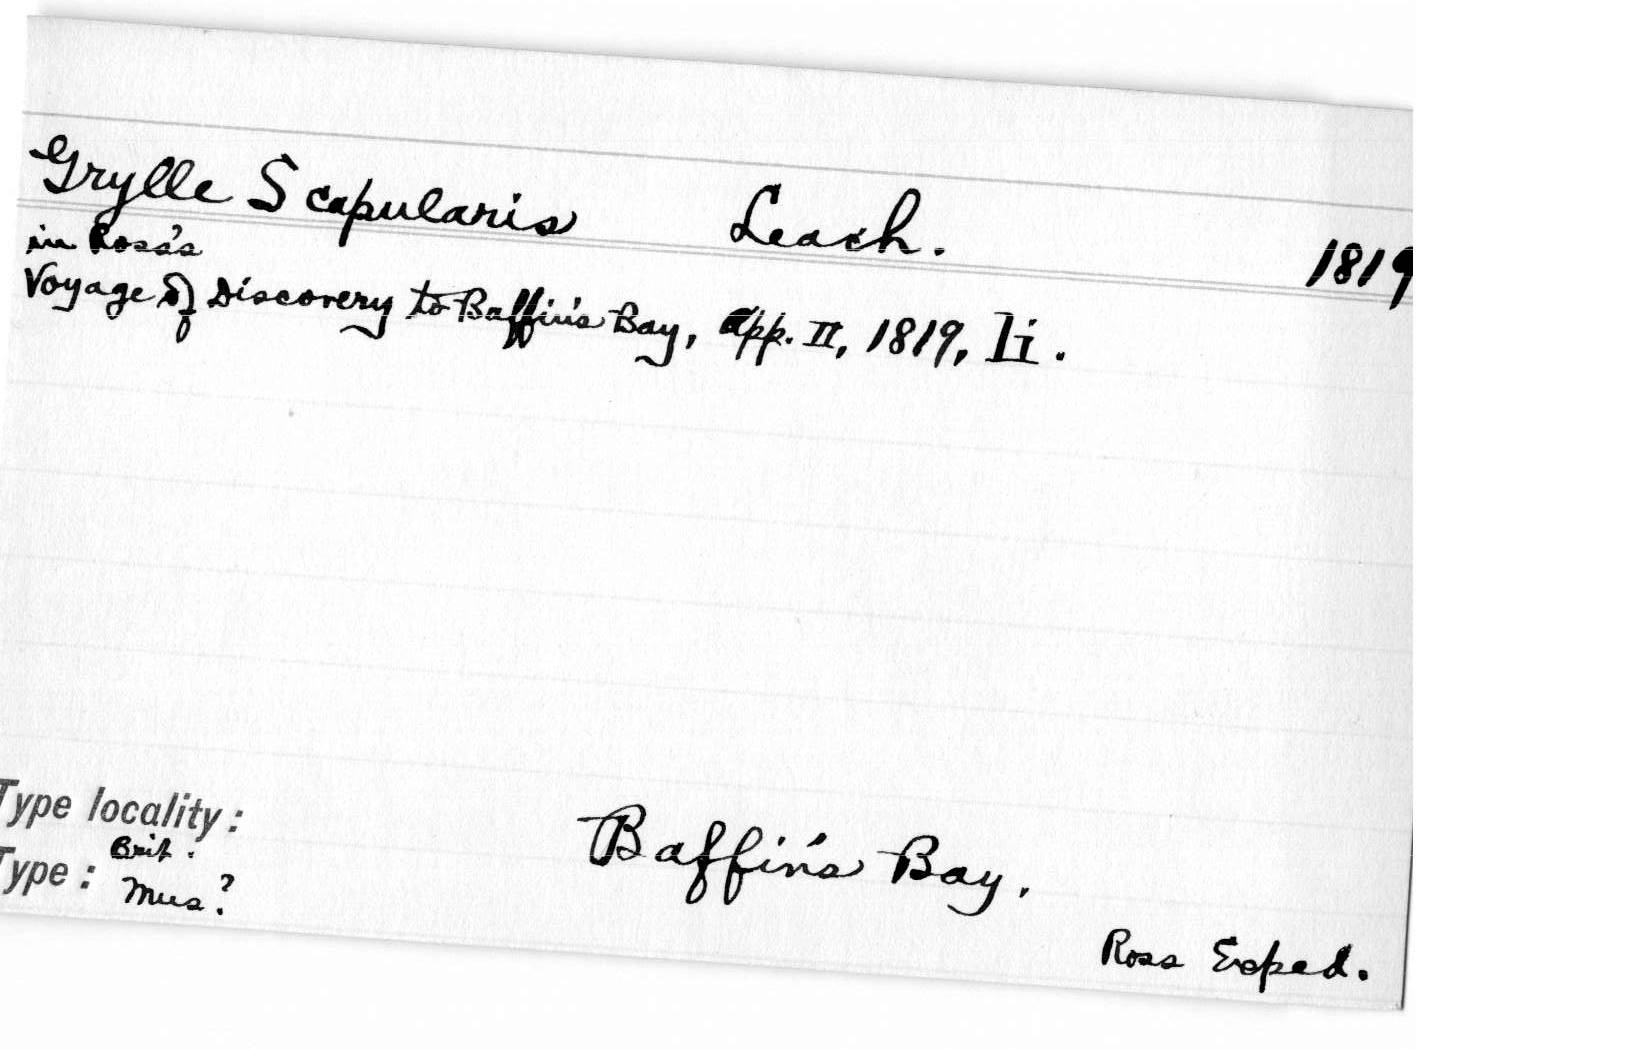 Grylle Scapularis Leach. 1819
in Ross's
Voyage of Discovery to Baffin's Bay, App. II, 1819, li.
Type locality: Baffin's Bay.
Type: Brit. Mus?
Ross Exped.